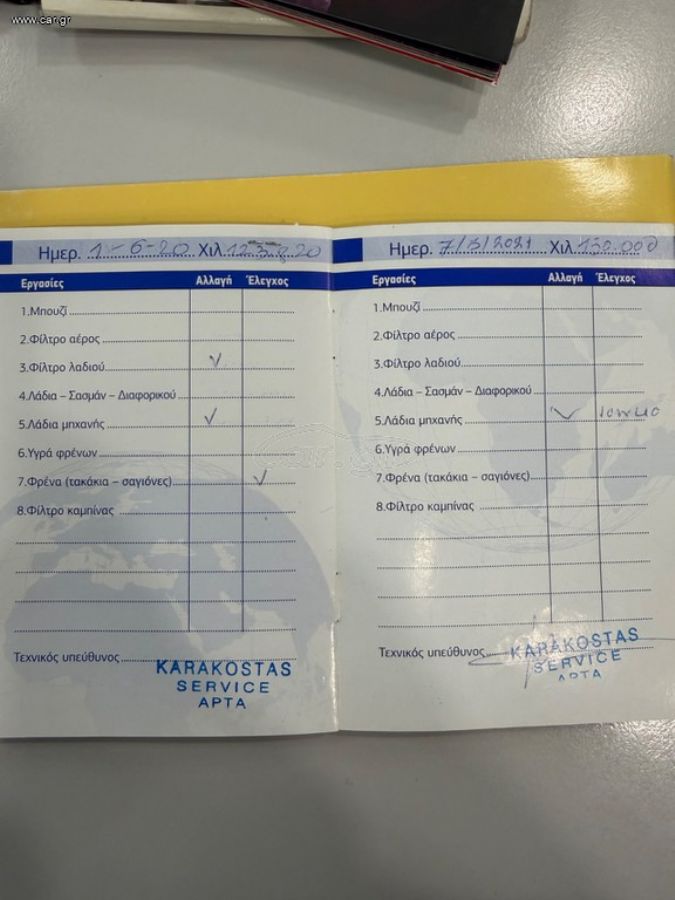 www.car.gr
Ημερ. 1-6-20 Χιλ. 123.820
Εργασίες Αλλαγή Έλεγχος
1.Μπουζί
2.Φίλτρο αέρος
3.Φίλτρο λαδιού
4.Λάδια – Σασμάν – Διαφορικού
5.Λάδια μηχανής
6.Υγρά φρένων
7.Φρένα (τακάκια – σαγιόνες)
8.Φίλτρο καμπίνας
Τεχνικός υπεύθυνος
KARAKOSTAS
SERVICE
ΑΡΤΑ
Ημερ. 7/3/2021 Χιλ. 130.000
Εργασίες Αλλαγή Έλεγχος
1.Μπουζί
2.Φίλτρο αέρος
3.Φίλτρο λαδιού
4.Λάδια – Σασμάν – Διαφορικού
5.Λάδια μηχανής 10W40
6.Υγρά φρένων
7.Φρένα (τακάκια – σαγιόνες)
8.Φίλτρο καμπίνας
Τεχνικός υπεύθυνος
KARAKOSTAS
SERVICE
ΑΡΤΑ